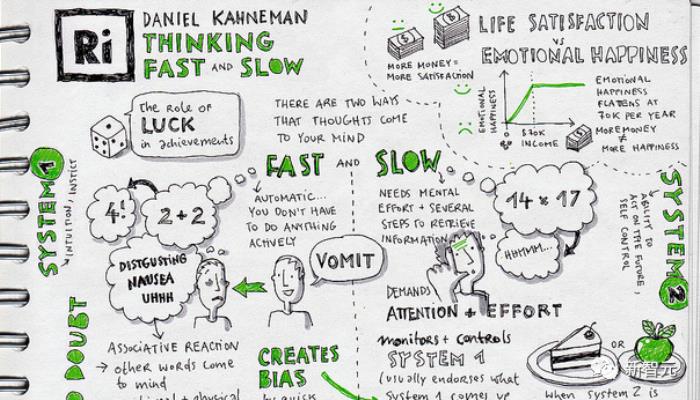 Ri
DANIEL KAHNEMAN
THINKING
FAST AND SLOW
LIFE SATISFACTION
VS
EMOTIONAL HAPPINESS
MORE MONEY =
MORE SATISFACTION
EMOTIONAL
HAPPINESS
$70K
INCOME
EMOTIONAL
HAPPINESS
FLATTENS AT
70K PER YEAR
MORE MONEY
≠
MORE HAPPINESS
The role of
LUCK
in achievements
THERE ARE TWO WAYS
THAT THOUGHTS COME
TO YOUR MIND
FAST AND SLOW
SYSTEM 1
INTUITION, INSTICT
4!
2+2
AUTOMATIC...
YOU DON'T HAVE
TO DO ANYTHING
ACTIVELY
DISTGUSTING
NAUSEA
UHHH
VOMIT
NEEDS MENTAL
EFFORT + SEVERAL
STEPS TO RETRIEVE
INFORMATION
14 x 17
HHMMM...
SYSTEM 2
ABILITY TO
ACT ON THE FUTURE,
SELF CONTROL
DEMANDS
ATTENTION + EFFORT
DOUBT
ASSOCIATIVE REACTION
→ other words come
to mind
physical
CREATES
BIAS
by quick
monitors + controls
SYSTEM 1
(usually endorses what
system 1 comes up
OR
when system 2 is
新智元